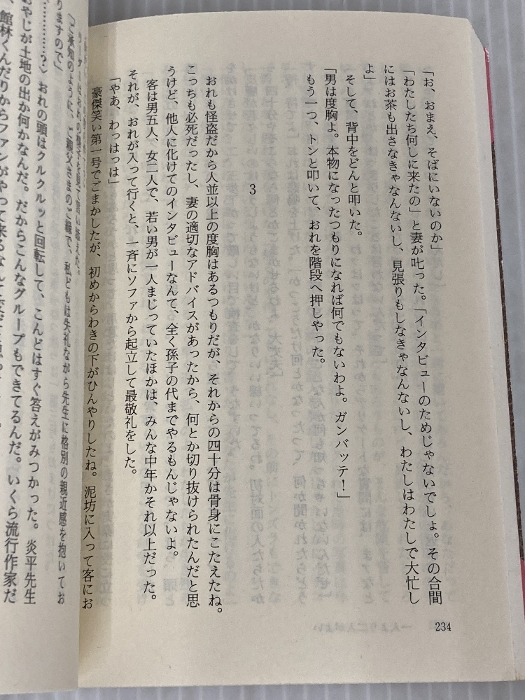 「お、おまえ、そばにいないのか」
「わたしたち何しに来たの」と妻が叱った。「インタビューのためじゃないでしょ。その合間
にはお茶も出さなきゃなんないし、見張りもしなきゃなんないし、わたしはわたしで大忙し
よ」
そして、背中をどんと叩いた。
「男は度胸よ。本物になったつもりになれば何でもないわよ。ガンバッテ！」
もう一つ、トンと叩いて、おれを階段へ押しやった。
3
おれも怪盗だから人並以上の度胸はあるつもりだが、それからの四十分は骨身にこたえたね。
こっちも必死だったし、妻の適切なアドバイスがあったから、何とか切り抜けられたんだと思
うけど、他人に化けてのインタビューなんて、全く孫子の代までやるもんじゃないよ。
客は男五人、女二人で、若い男が一人まじっていたほかは、みんな中年かそれ以上だった。
それが、おれが入って行くと、一斉にソファから起立して最敬礼をした。
「やあ、わっはっは」
豪傑笑い第一号でごまかしたが、初めからわきの下がひんやりしたね。泥坊に入って客にお
私どもは失礼ながら先生に格別の親近感を抱いてお
りますので」
……？おれの頭はクルクルッと回転して、こんどはすぐ答えがみつかった。炎平先生
おやじが土地の出か何かなんだ。だからこんなグループもできてるんだ。いくら流行作家だ
館林くんだりからファンがやって来るなんて
234